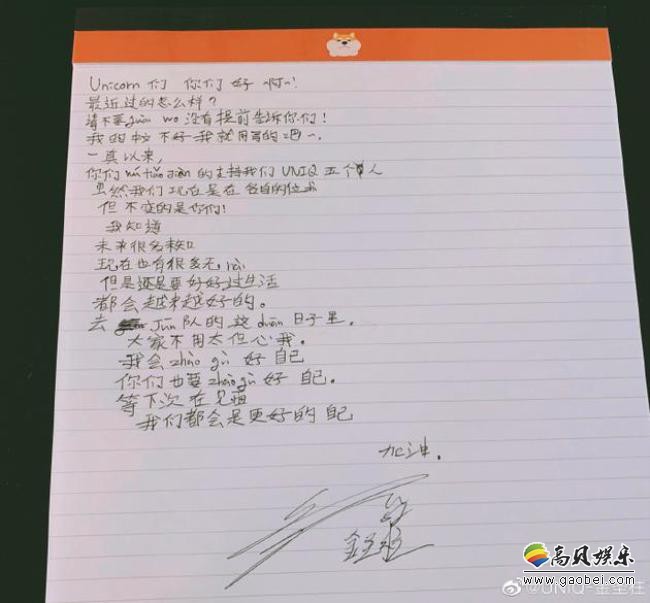 Unicorn 们 你们 好 啊~!
最近过的怎么样?
请不要guài wo 没有提前告诉你们!
我的中文不好 我就用写的吧~.
一真以来,
你们wú tiáo jiàn的支持我们 UNIQ 五个人
虽然我们现在是在 各自的位
但 不变的是你们!
我知道
未来很多未知
现在也有很多无
但是还是要好好过生活
都会越来越好的。
去 Jūn 队的 这 duàn 日子里.
大家不用太但心我。
我会 zhào gù 好 自己
你们也要zhào gù 好 自己.
等下次在见面
我们都会是更好的自己
加油.
高贝娱乐
www.gaobei.com
@UNIQ-金圣柱